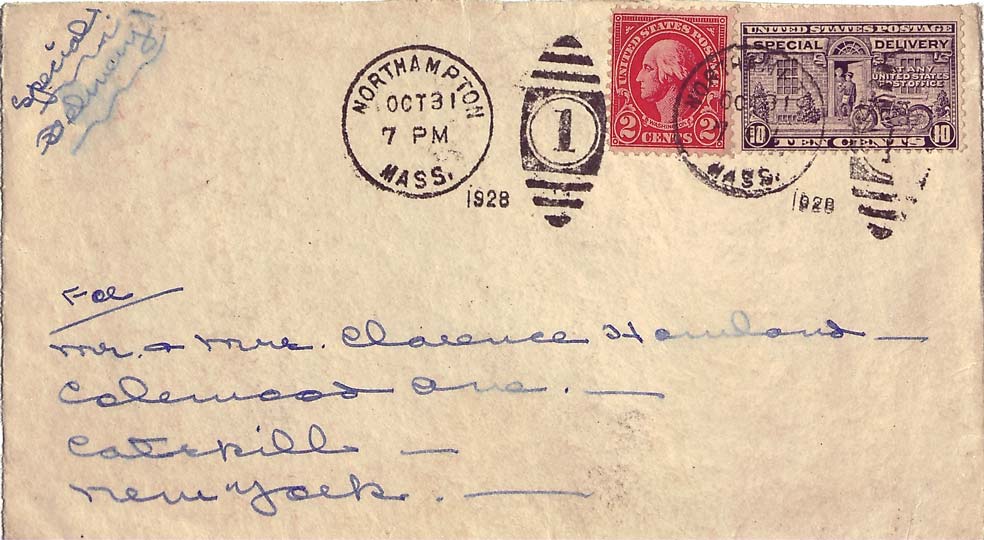 Special
Delivery!
NORTHAMPTON
OCT 31
7 PM
MASS.
1928
1
UNITED STATES POSTAGE
WASHINGTON
2 CENTS 2
UNITED STATES POSTAGE
SPECIAL DELIVERY
AT ANY
UNITED STATES
POST OFFICE
10 TEN CENTS 10
OCT 31
MASS.
1928
For
Mr. & Mrs. Clarence Howland —
Colewood Ave. —
Catskill —
New York. —